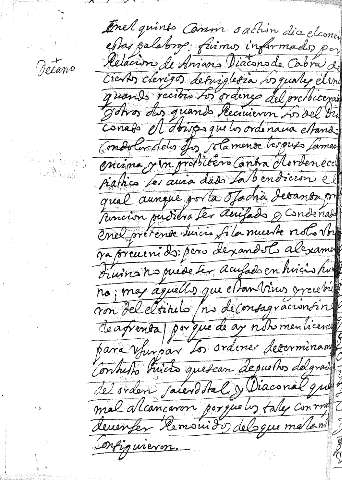 Decano
En el quinto Canon o action dia el conc
estas palabras: fuimos informados por
Relacion de Aniano Diacono de Cabra de
ciertos clerigos de su iglesia los quales el uno
quando recibio los ordenes del presbiterado
y otros dos quando Recivieron los del Dia
conado el obispo que los ordenava estando
con dolor de ojos solamente les puso la mano
encima y un presbitero contra el orden ecle
siastico les avia dado la bendicion el
qual aunque por la osadia de tanta pre
suncion pudiera ser acusado y condenado
en el presente juicio si la muerte no lo ubie
ra prevenido: pero dexandolo al examen
divino no puede ser acusado en juicio huma
no; mas aquellos que estan vivos y recibie
ron del el titulo no de consagracion sino
de afrenta; porque de ay no tomen licencia
para usurpar los ordenes determinamos
con justo juicio que sean depuestos del grado
del orden sacerdotal y Diaconal que
mal alcançaron porque los tales con
deven ser Removidos, de lo que mala
consiguieron.